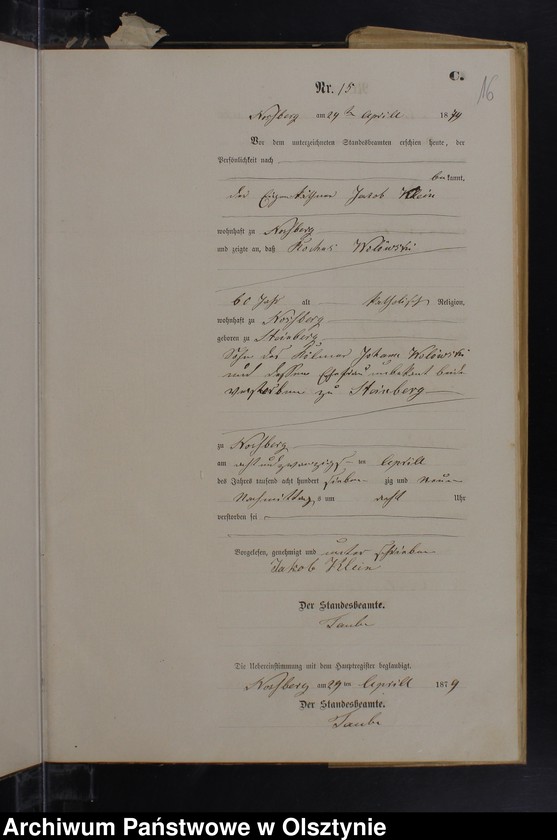 C.
16
Nr. 15
am 29ten Aprill 1879
Vor dem unterzeichneten Standesbeamten erschien heute, der
Persönlichkeit nach
bekannt,
der Eigenthümer Jacob Klein
wohnhaft zu
und zeigte an, daß Wilówski
60 Jahr alt katholisch Religion,
wohnhaft zu
geboren zu Steinberg
Sohn des Kölmer Johann Wilówski
und dessen Ehefrau unbekant beide
verstorben zu Steinberg
zu
am acht und zwanzigsten Aprill
des Jahres tausend acht hundert sieben zig und Neun
Nachmittags um acht Uhr
verstorben sei
Vorgelesen, genehmigt und unterschrieben
Jakob Klein
Der Standesbeamte.
Taube
Die Uebereinstimmung mit dem Hauptregister beglaubigt.
am 29ten Aprill 1879
Der Standesbeamte.
Taube
Archiwum Państwowe w Olsztynie